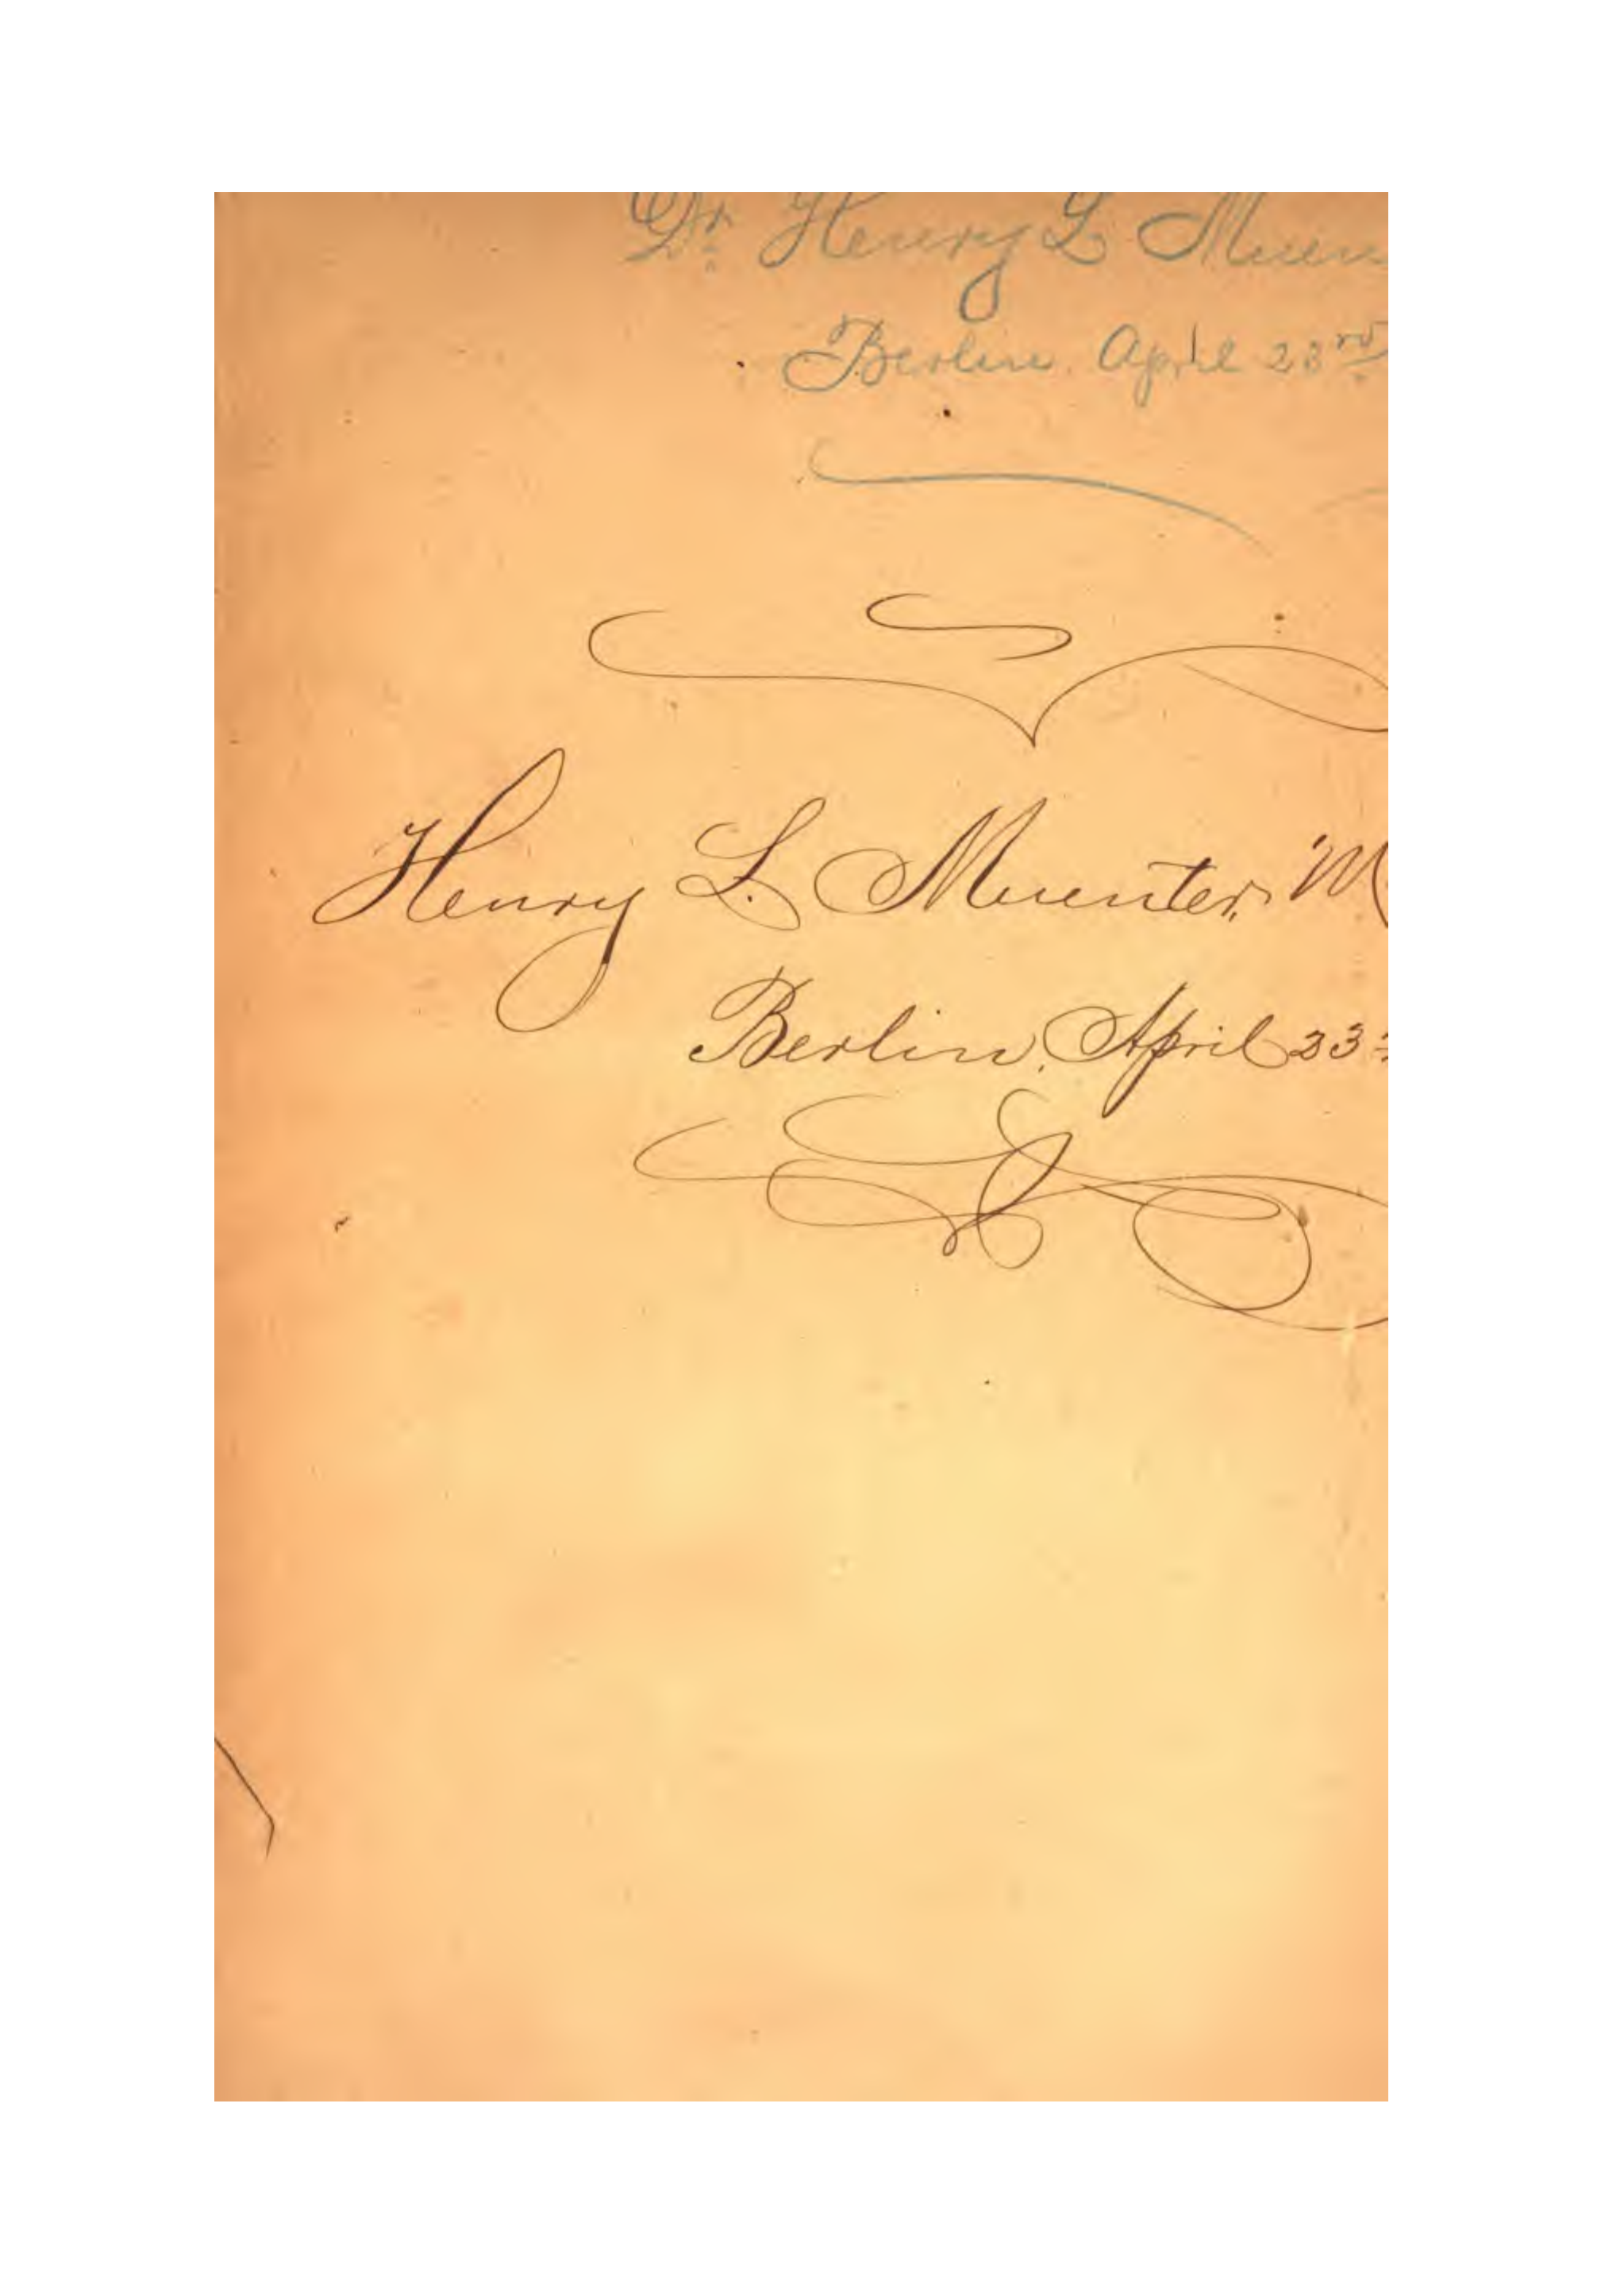 Dr. Henry L Muen
Berlin, April 23rd
Henry L. Muenter, M
Berlin, April 23